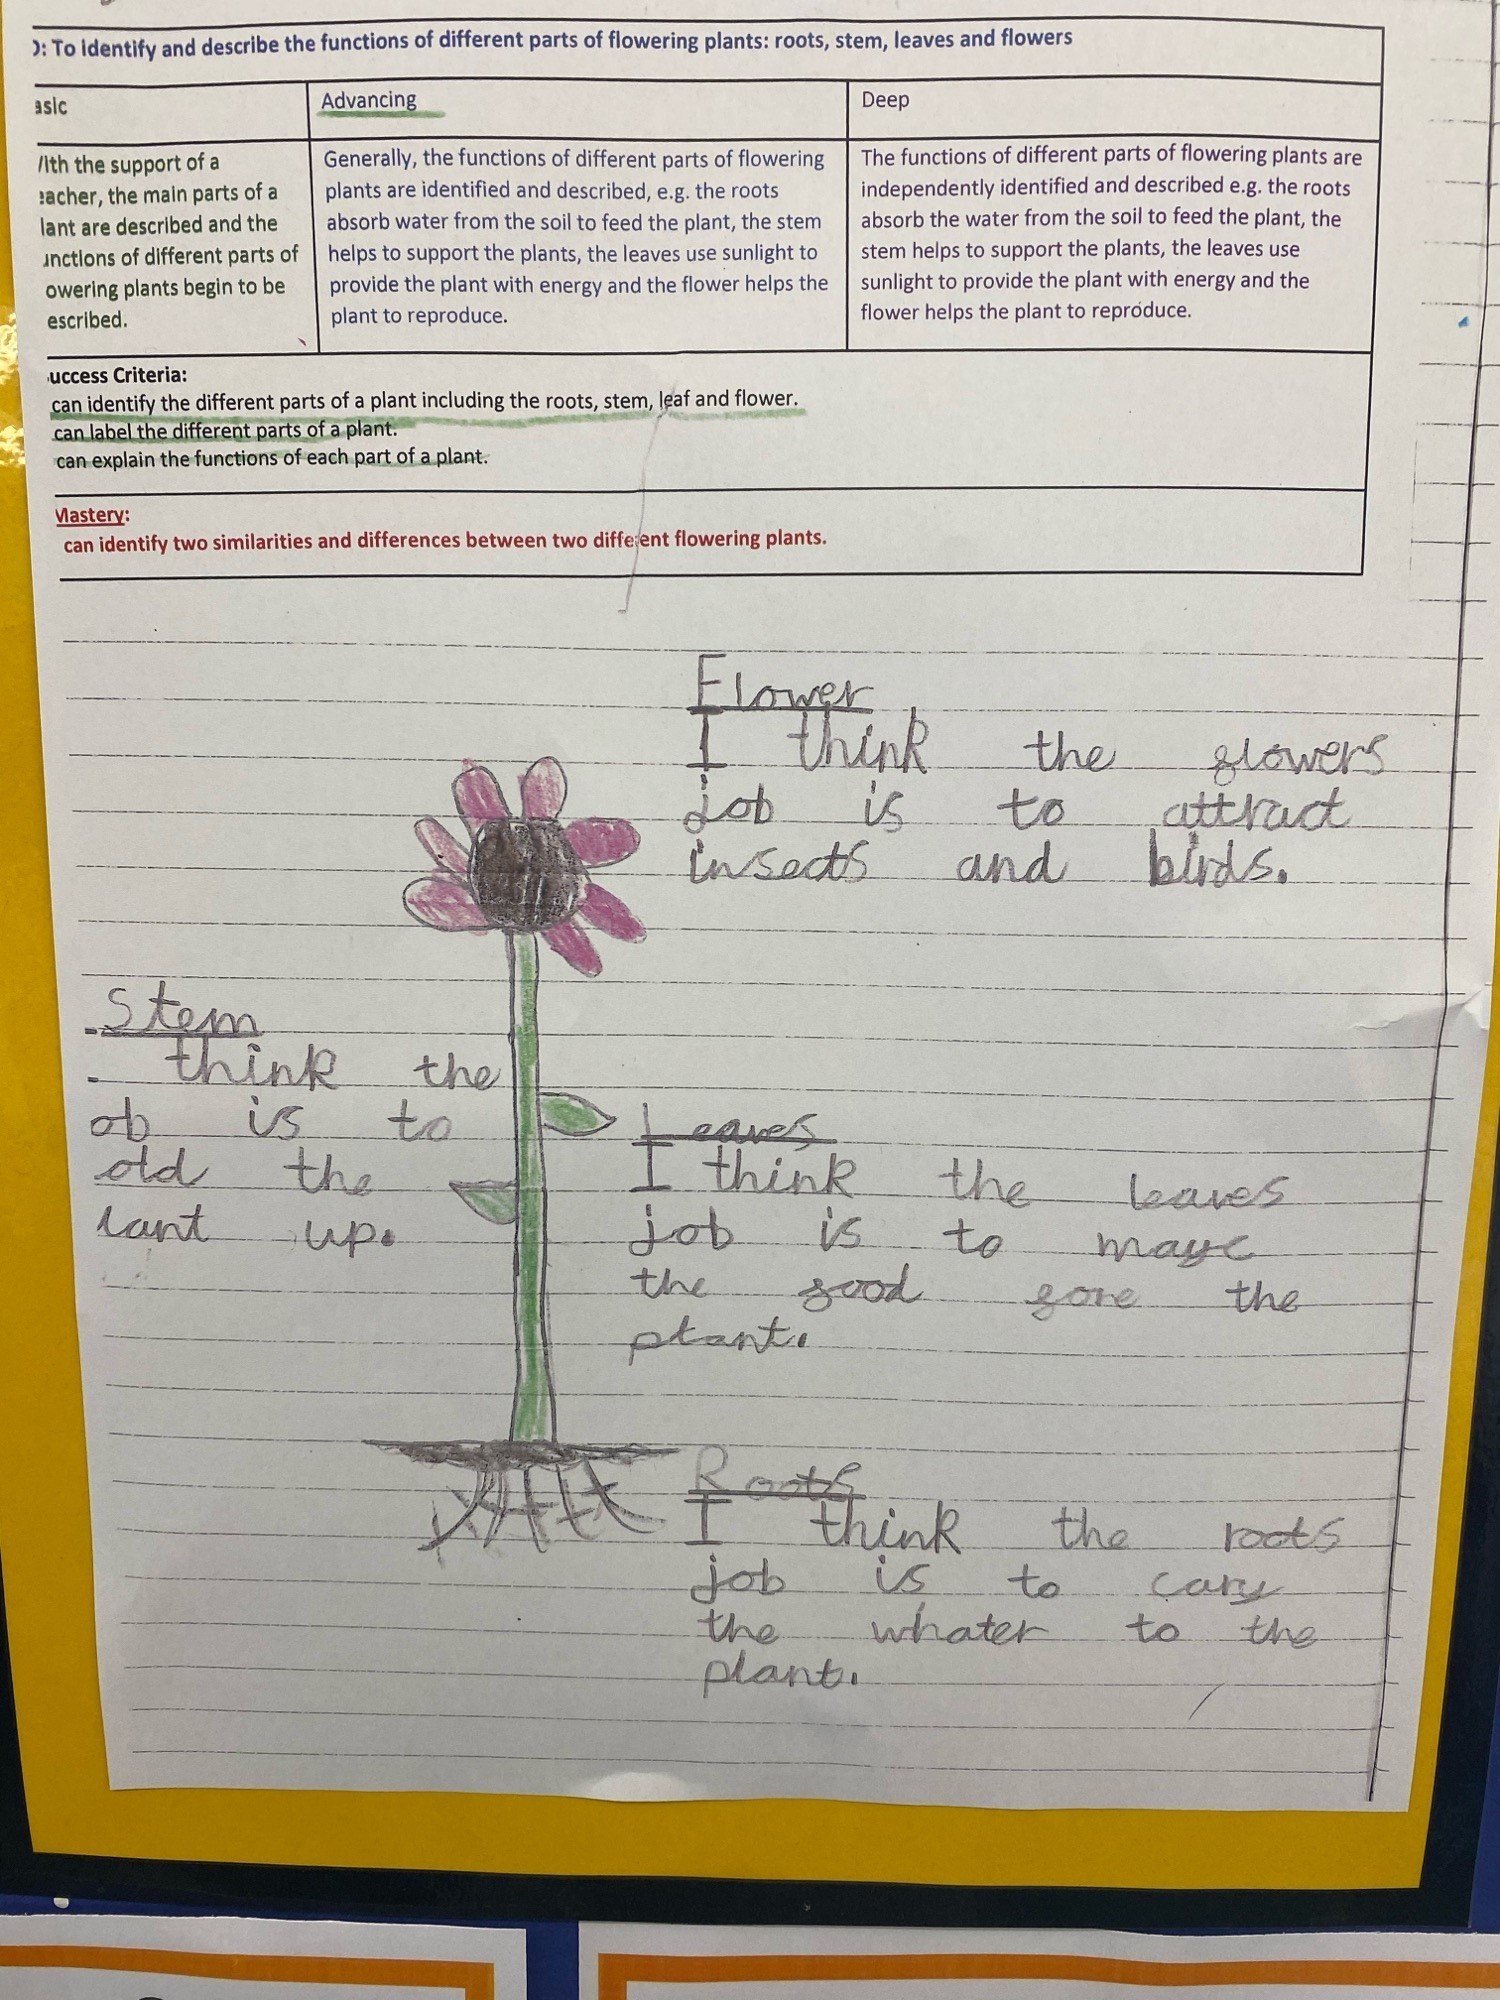 ): To Identify and describe the functions of different parts of flowering plants: roots, stem, leaves and flowers
asic
Advancing
Deep
ith the support of a
eacher, the main parts of a
lant are described and the
unctions of different parts of
owering plants begin to be
escribed.
Generally, the functions of different parts of flowering
plants are identified and described, e.g. the roots
absorb water from the soil to feed the plant, the stem
helps to support the plants, the leaves use sunlight to
provide the plant with energy and the flower helps the
plant to reproduce.
The functions of different parts of flowering plants are
independently identified and described e.g. the roots
absorb the water from the soil to feed the plant, the
stem helps to support the plants, the leaves use
sunlight to provide the plant with energy and the
flower helps the plant to reproduce.
uccess Criteria:
can identify the different parts of a plant including the roots, stem, leaf and flower.
can label the different parts of a plant.
can explain the functions of each part of a plant.
Mastery:
can identify two similarities and differences between two different flowering plants.
Flower
I think the flowers
job is to attract
insects and birds.
Stem
think the
ob is to
old the
lant up.
Leaves
I think the leaves
job is to mayc
the food fore the
plant.
Roots
I think the roots
job is to cary
the whater to the
plant.